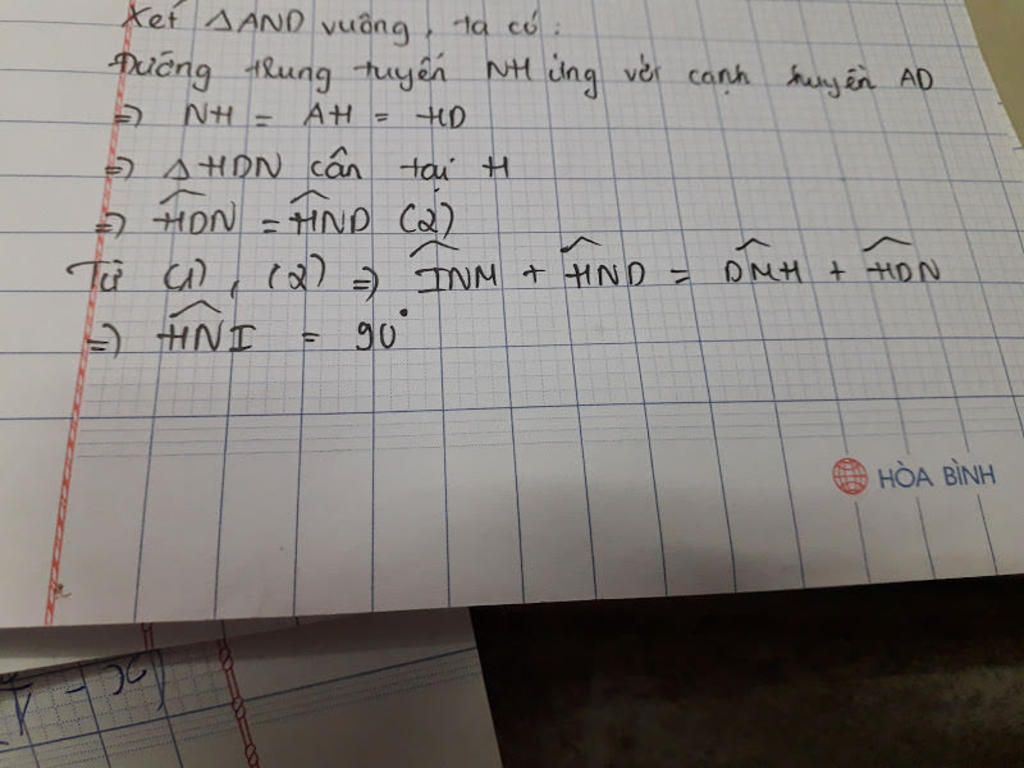 Xét ΔAND vuông, ta có:
Đường trung tuyến NH ứng với cạnh huyền AD
=> NH = AH = HD
=> ΔHDN cân tại H
=> \widehat{HDN} = \widehat{HND} (2)
Từ (1), (2) => \widehat{INM} + \widehat{HND} = \widehat{DMH} + \widehat{HDN}
=> \widehat{HNI} = 90°
HÒA BÌNH